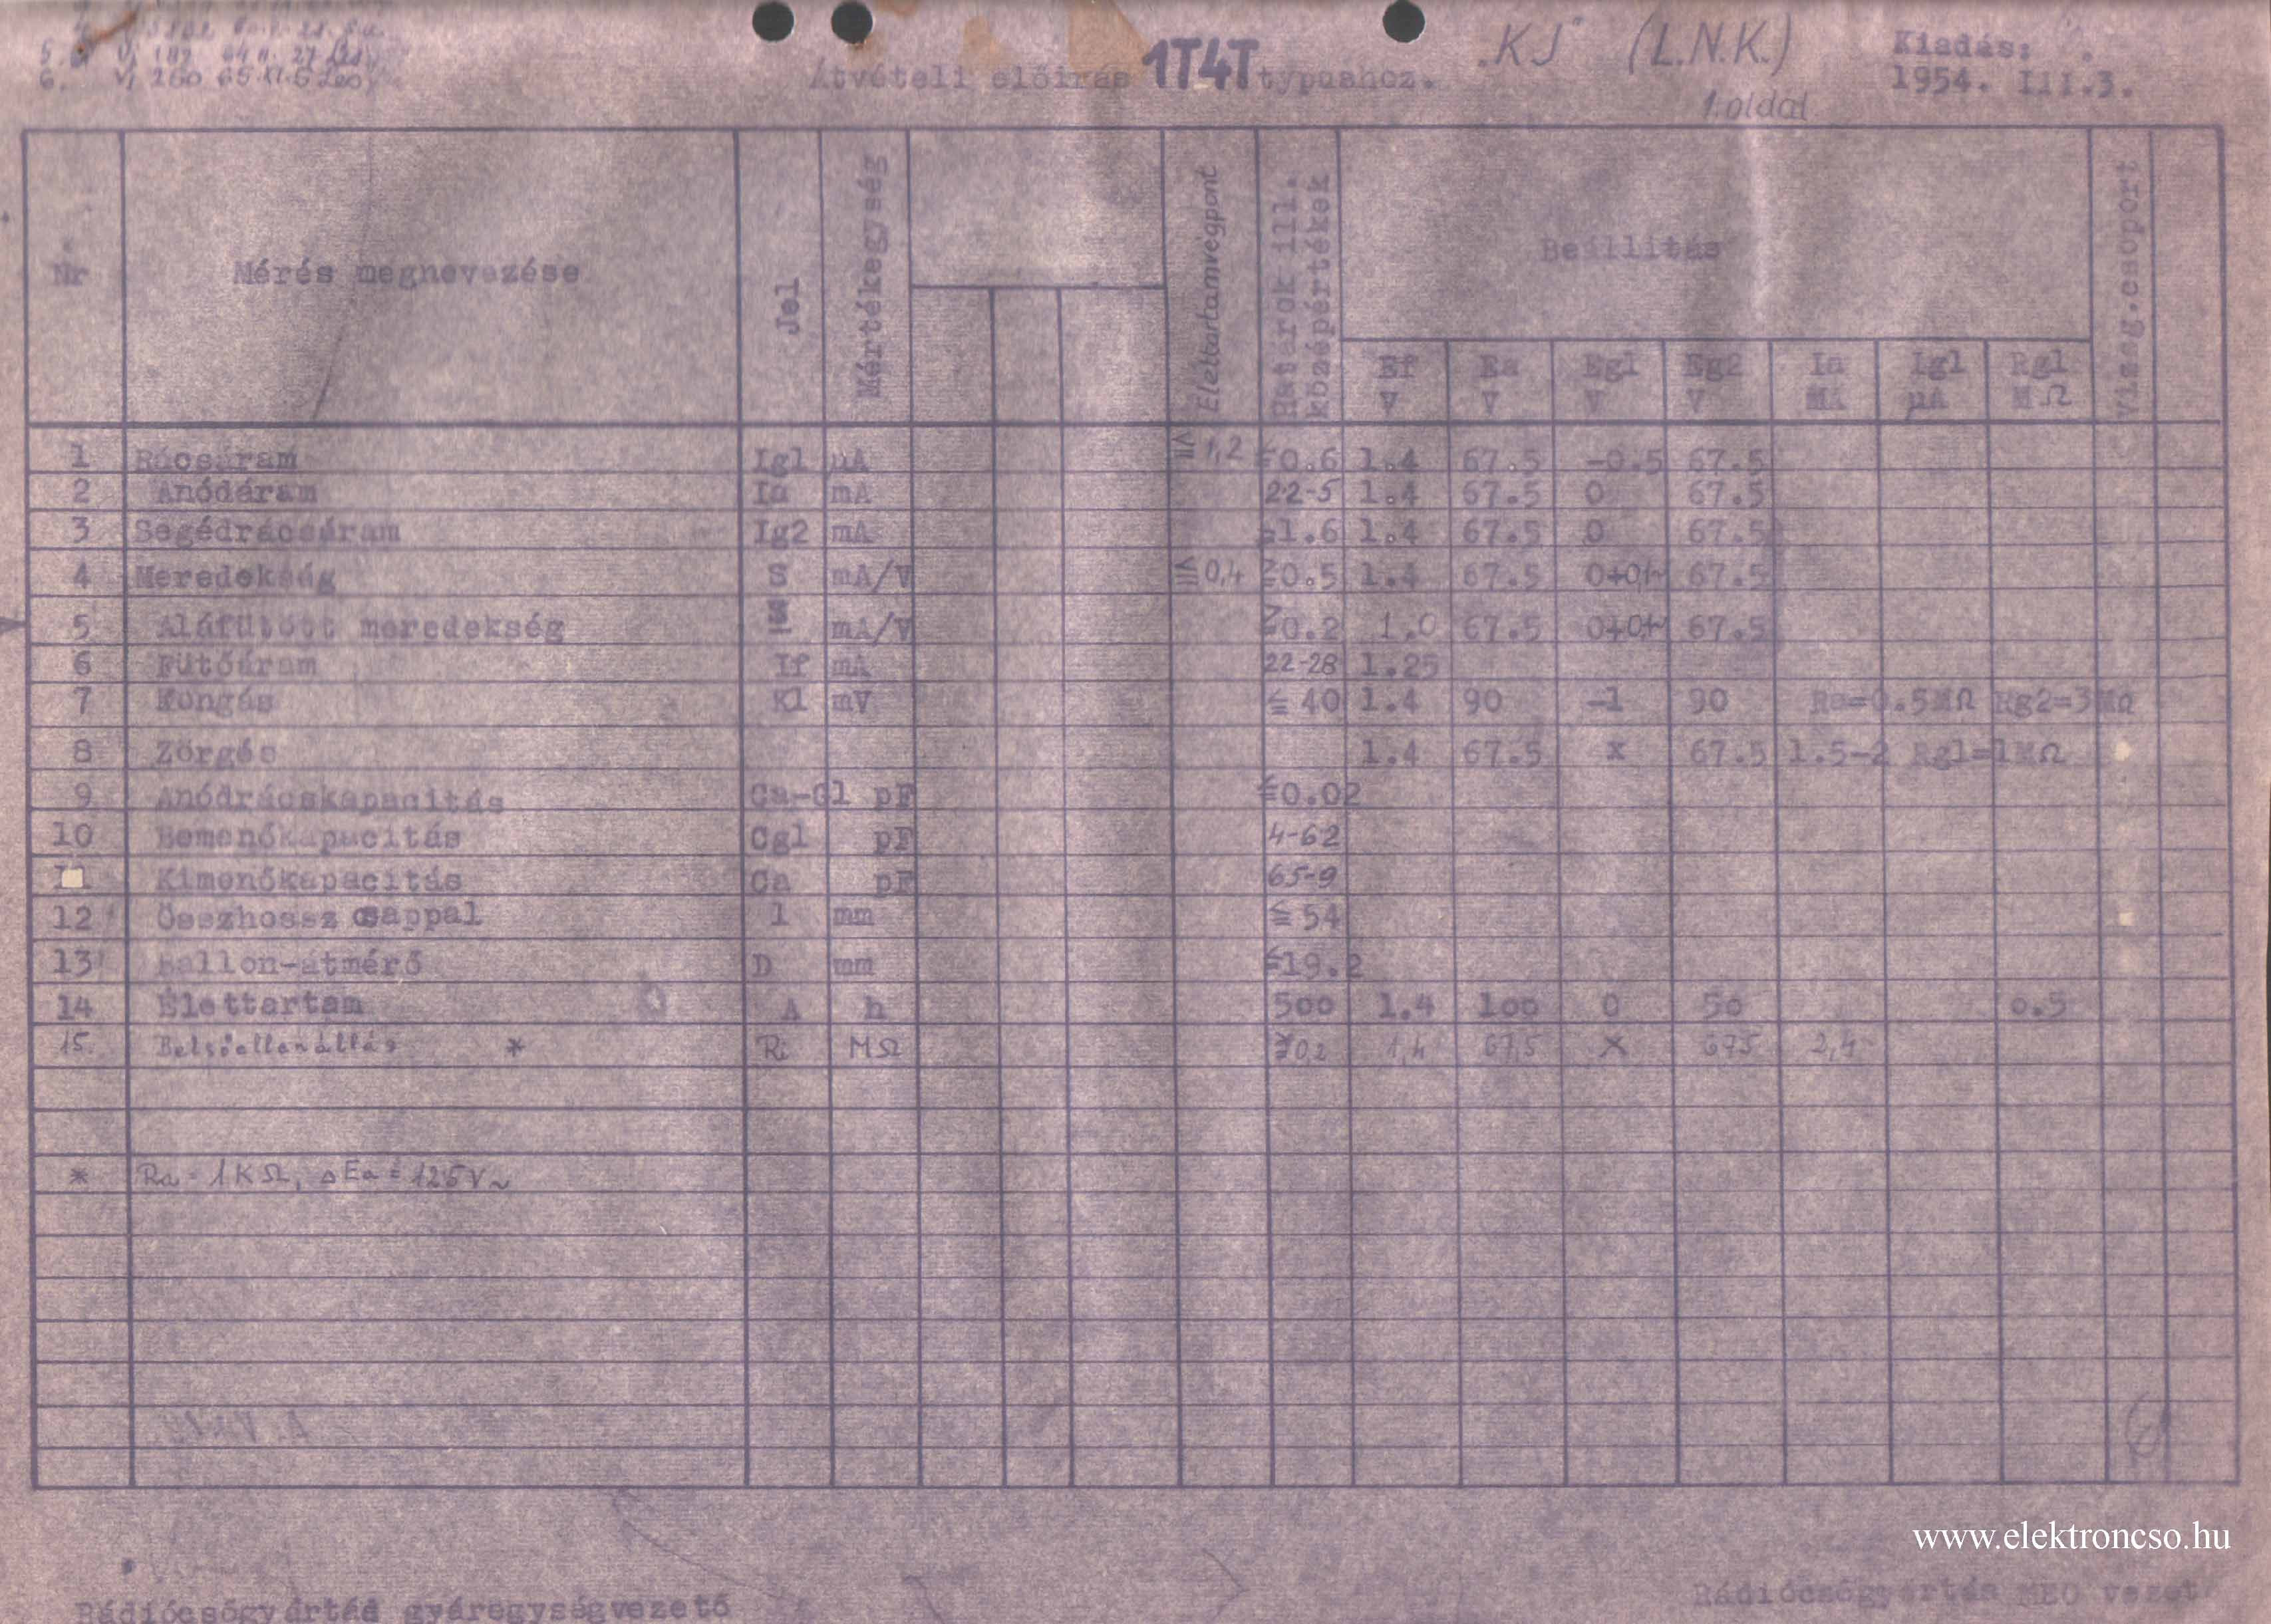 6. VI 260 65 XI. 6
Átvételi előirás 1T4T typushoz.
"KJ" (L.N.K.)
1. oldal
Kiadás:
1954. III.3.
Nr Mérés megnevezése Jel Mértékegység Élettartamvégpont Határok ill. középértékek Beállitás Vizsg.csoport
Ef Ea Eg1 Eg2 Ia Ig1 Rg1
V V V V mA µA MΩ
1 Rácsáram Ig1 µA ≦ 1,2 ≦0.6 1.4 67.5 -0.5 67.5
2 Anódáram Ia mA 22-5 1.4 67.5 0 67.5
3 Segédrácsáram Ig2 mA 1.6 1.4 67.5 0 67.5
4 Meredekség S mA/V 0,4 ≧0.5 1.4 67.5 67.5
5 Aláfütött meredekség S mA/V ≧0.2 1.0 67.5 67.5
6 Fütőáram If mA 22-28 1.25
7 Kongás Kl mV ≦ 40 1.4 90 -1 90 Ra=0.5MΩ Rg2=3MΩ
8 Zörgés 1.4 67.5 x 67.5 1.5-2 Rg1=1MΩ
9 Anódrácskapacitás Ca-G1 pF ≦0.02
10 Bemenőkapacitás Cg1 pF 4-62
11 Kimenőkapacitás Ca pF 65-9
12 Összhossz csappal l mm ≦ 54
13 Ballon-átmérő D mm ≦19.2
14 Élettartam A h 500 1.4 100 0 50 0.5
15. Belsőellenállás * Ri MΩ 0,2 1,4 67,5 X 675 2,4
* Ra = 1 KΩ, ΔEa = 125 V~
www.elektroncso.hu
Rádiócsőgyártás gyáregységvezető
Rádiócsőgyártás MEO vezető